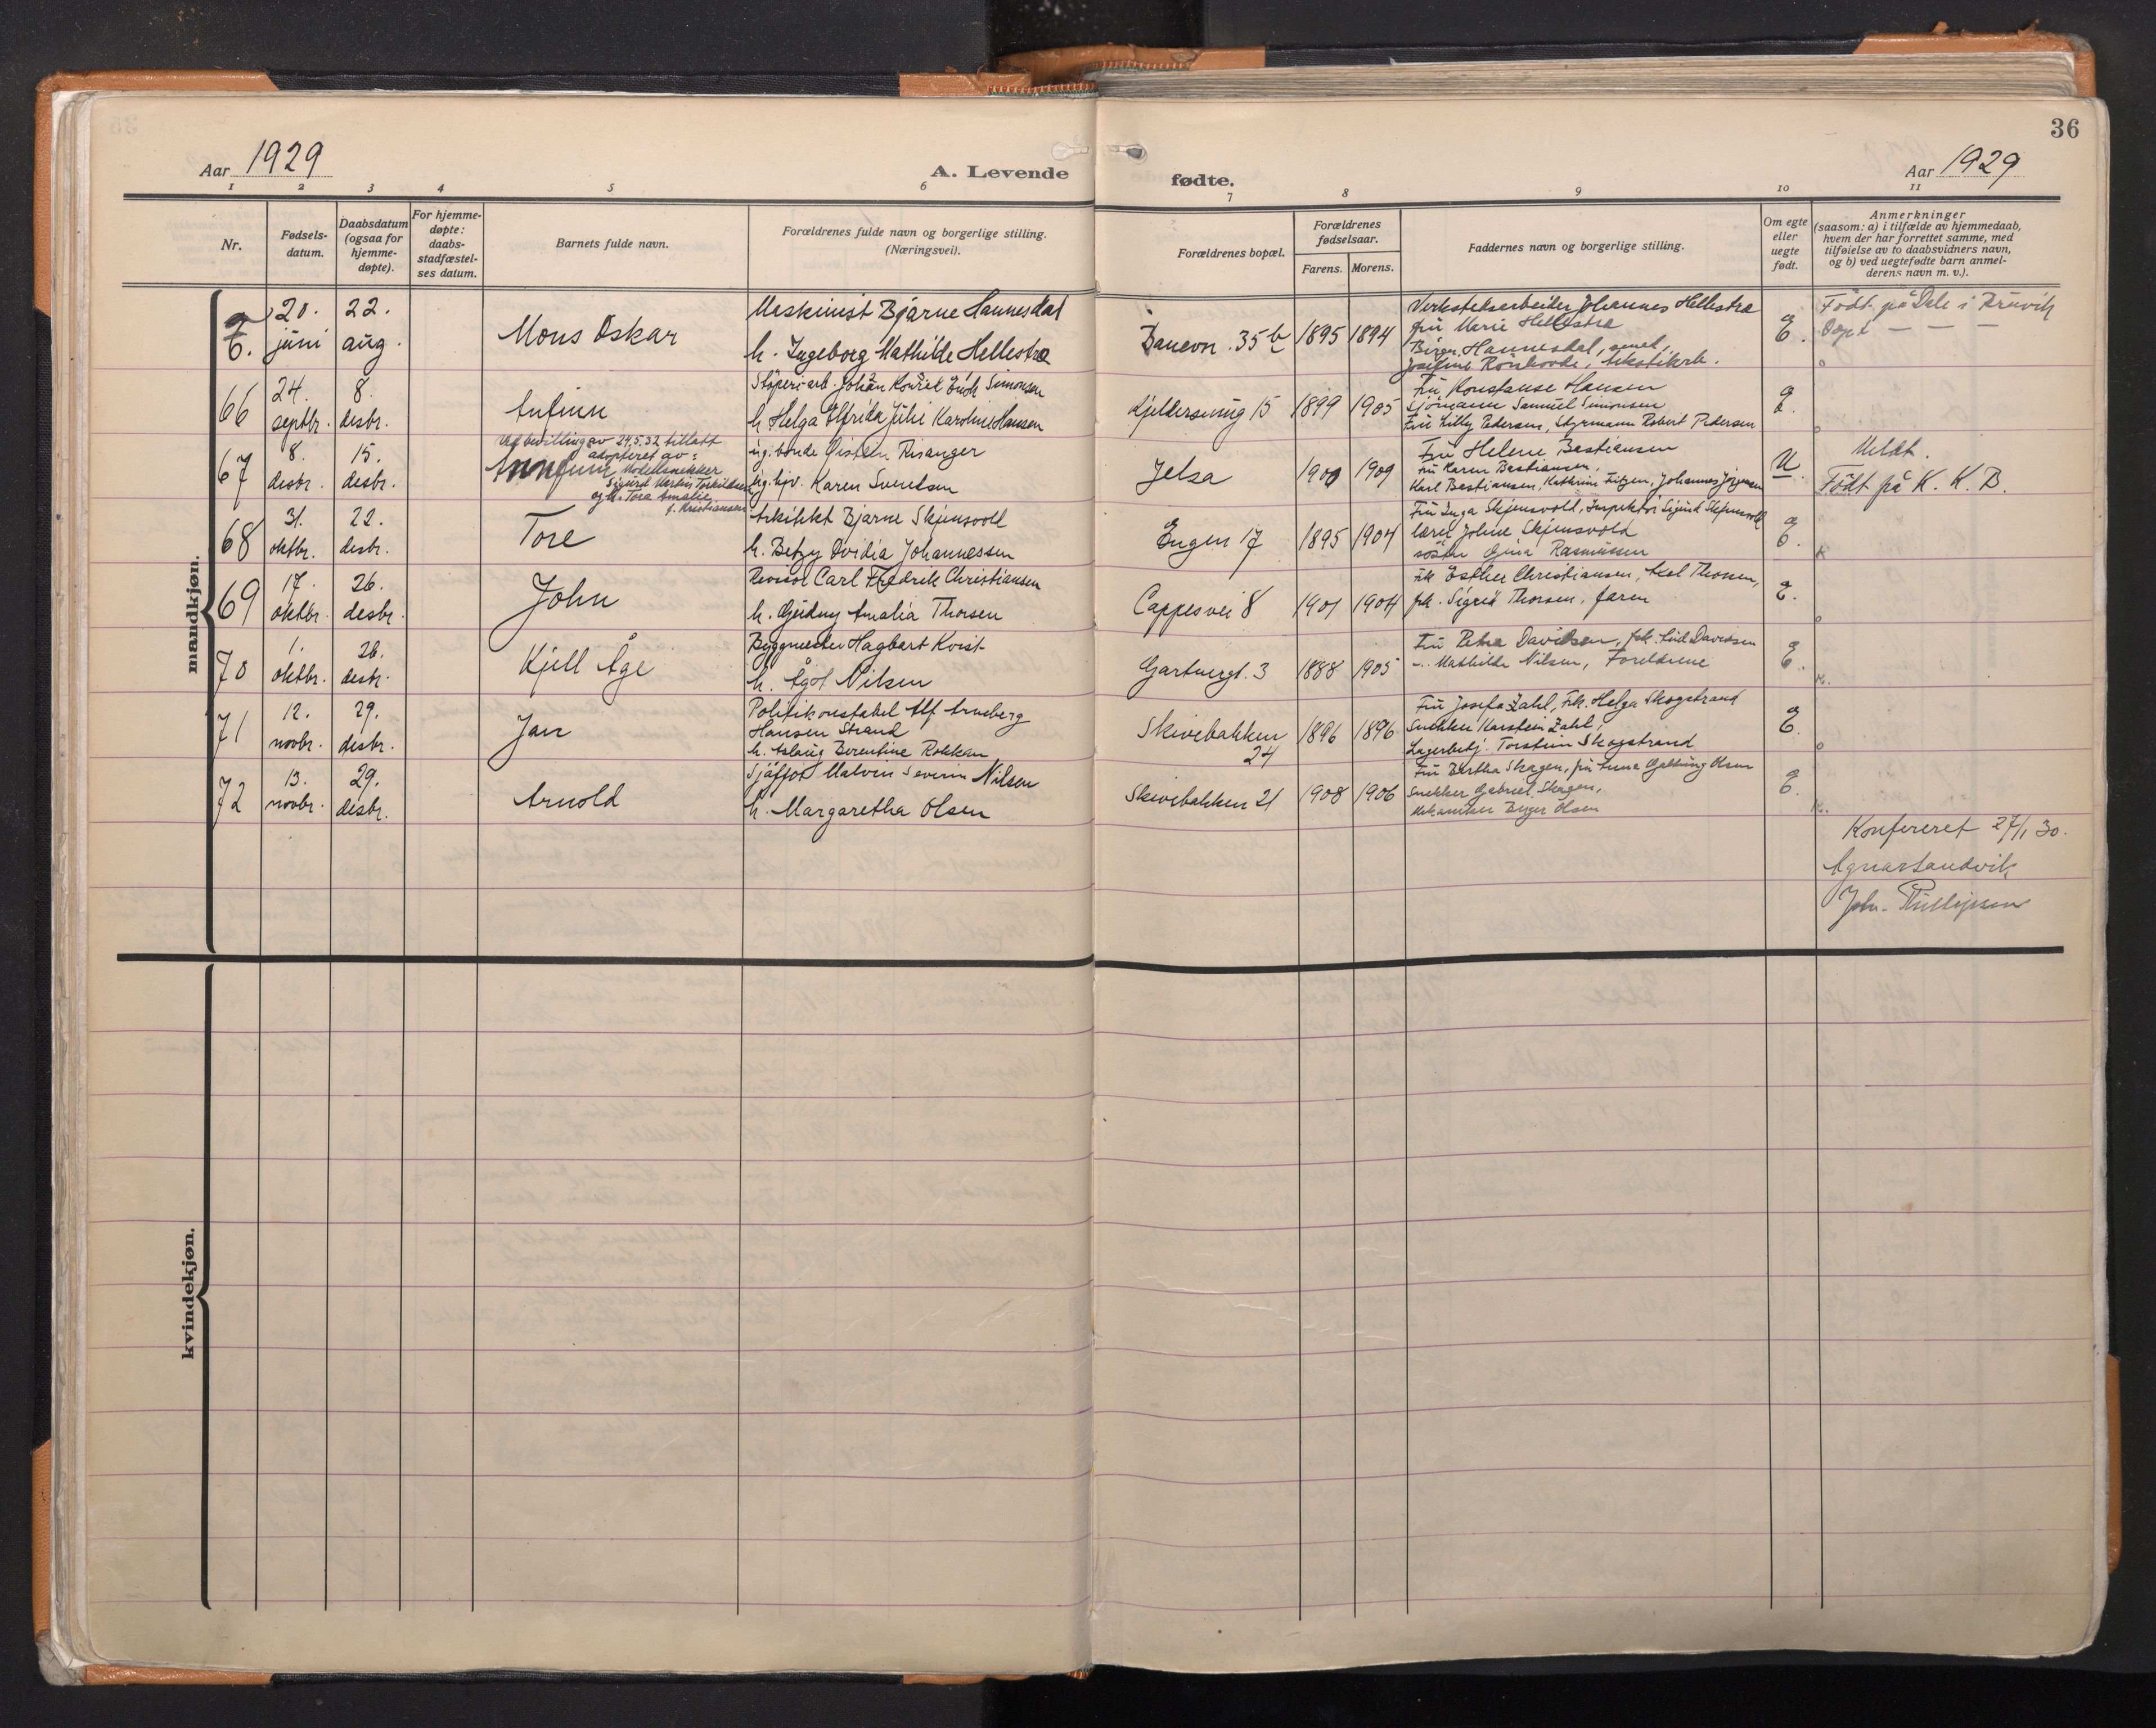 36
Aar 1929
A. Levende
fødte.
Aar 1929
1 2 3 4 5 6 7 8 9 10 11
Nr.
Fødsels-
datum.
Daabsdatum
(ogsaa for
hjemme-
døpte).
For hjemme-
døpte:
daabs-
stadfæstel-
ses datum.
Barnets fulde navn.
Forældrenes fulde navn og borgerlige stilling.
(Næringsvei).
Forældrenes bopæl.
Forældrenes
fødselsaar.
Farens. Morens.
Faddernes navn og borgerlige stilling.
Om egte
eller
uegte
født.
Anmerkninger
(saasom: a) i tilfælde av hjemmedaab,
hvem der har forrettet samme, med
tilføielse av to daabsvidners navn,
og b) ved uegtefødte barn anmel-
derens navn m. v.).
mandkjøn.
20. juni
22. aug.
Mons Oskar
Maskinist Bjarne Hannesdal
h. Ingeborg Mathilde Hellestra
35 b
1895 1894
Verkstedsarbeider Johannes Hellestra
fru Marie Hellestra
Hannesdal,
E.
Født på Dale i Bruvik
Døpt — — —
66
24. septbr.
8. desbr.
Anfinn
Støperiarb. Johan Konrad Simonsen
h. Helga Elfrida Julie Karoline Hansen
Kjellersmug 15
1899 1905
Fru Konstanse Hansen
Sjømann Samuel Simonsen
Fru Lilly Pedersen, Styrmann Robert Pedersen
E.
67
8. desbr.
15. desbr.
Ved bevilling av 24.5.32 tillatt
adopteret av:
Modellsnekker
Sigurd Martin Torkildsen
og h. Tora Amalie
f. Kristiansen
ug. bonde Øistein Risanger
ug. hjv. Karen Svendsen
Jelsa
1900 1909
Fru Helene Bastiansen
Fru Karen Bastiansen,
Karl Bastiansen, Kathrine Johannes Jørgensen
U.
Meldt.
Født på K. K. B.
68
31. oktbr.
22. desbr.
Tore
Arkitekt Bjarne Skjensvold
h. Betzy Ovidia Johannessen
Engen 17
1895 1904
Fru Inga Skjensvold, Inspektør Sigurd Skjensvold
lærer Johne Skjensvold
søster Gina Rasmussen
E.
K
69
17. oktbr.
26. desbr.
John
Revisor Carl Fredrik Christiansen
h. Gudny Amalia Thorsen
Cappesvei 8
1901 1904
Frk Esther Christiansen, Axel Thorsen,
frk. Sigrid Thorsen, faren
E.
70
1. oktbr.
26. desbr.
Kjell Åge
Byggmester Hagbart Kvist
h. Ågot Nilsen
Gartnergt. 3
1888 1905
Fru Petra Davidsen, frk. Davidsen
-"- Mathilde Nilsen, Foreldrene
E.
K.
71
12. novbr.
29. desbr.
Jan
Politikonstabel Alf Arneberg
Hansen Strand
h. Aslaug Berentine Rokkan
Skivebakken
24
1896 1896
Fru Josefa Zahl, Frk. Helga Skogstrand
Snekker Karstein Zahl,
Lagerbetj. Torstein Skogstrand
E.
72
13. novbr.
29. desbr.
Arnold
Sjåffør Malvin Severin Nilsen
h. Margaretha Olsen
Skivebakken 21
1908 1906
Fru Bertha Skagen, fru Anna Olsen
Snekker Gabriel Skagen,
Mekaniker Birger Olsen
E.
K.
Konfereret 27/1 30.
Agnar Sandvik
Johs. Phillipsen
kvindekjøn.